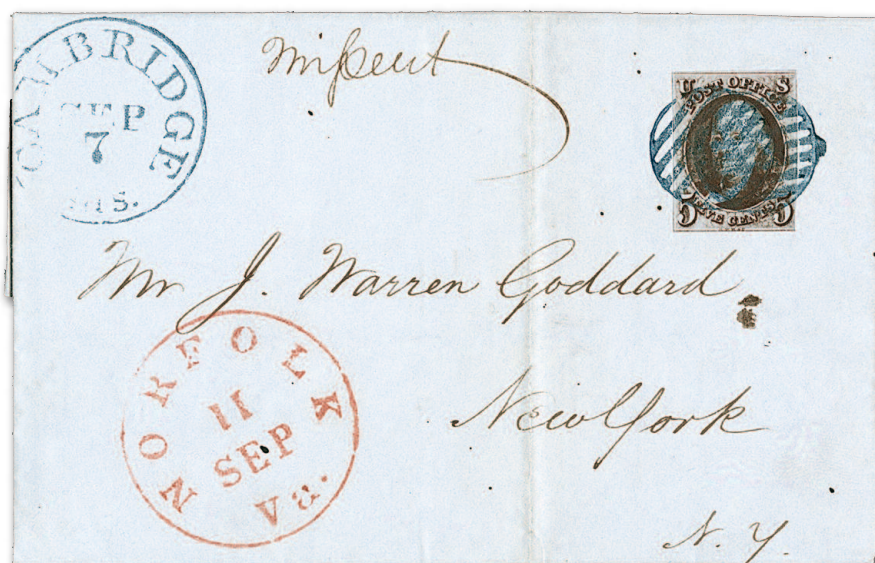 CAMBRIDGE
SEP
7
Ms.
Missent
U S
POST OFFICE
FIVE CENTS
5 5
Mr J. Warren Goddard
New York
N. Y.
NORFOLK
11
SEP
Va.